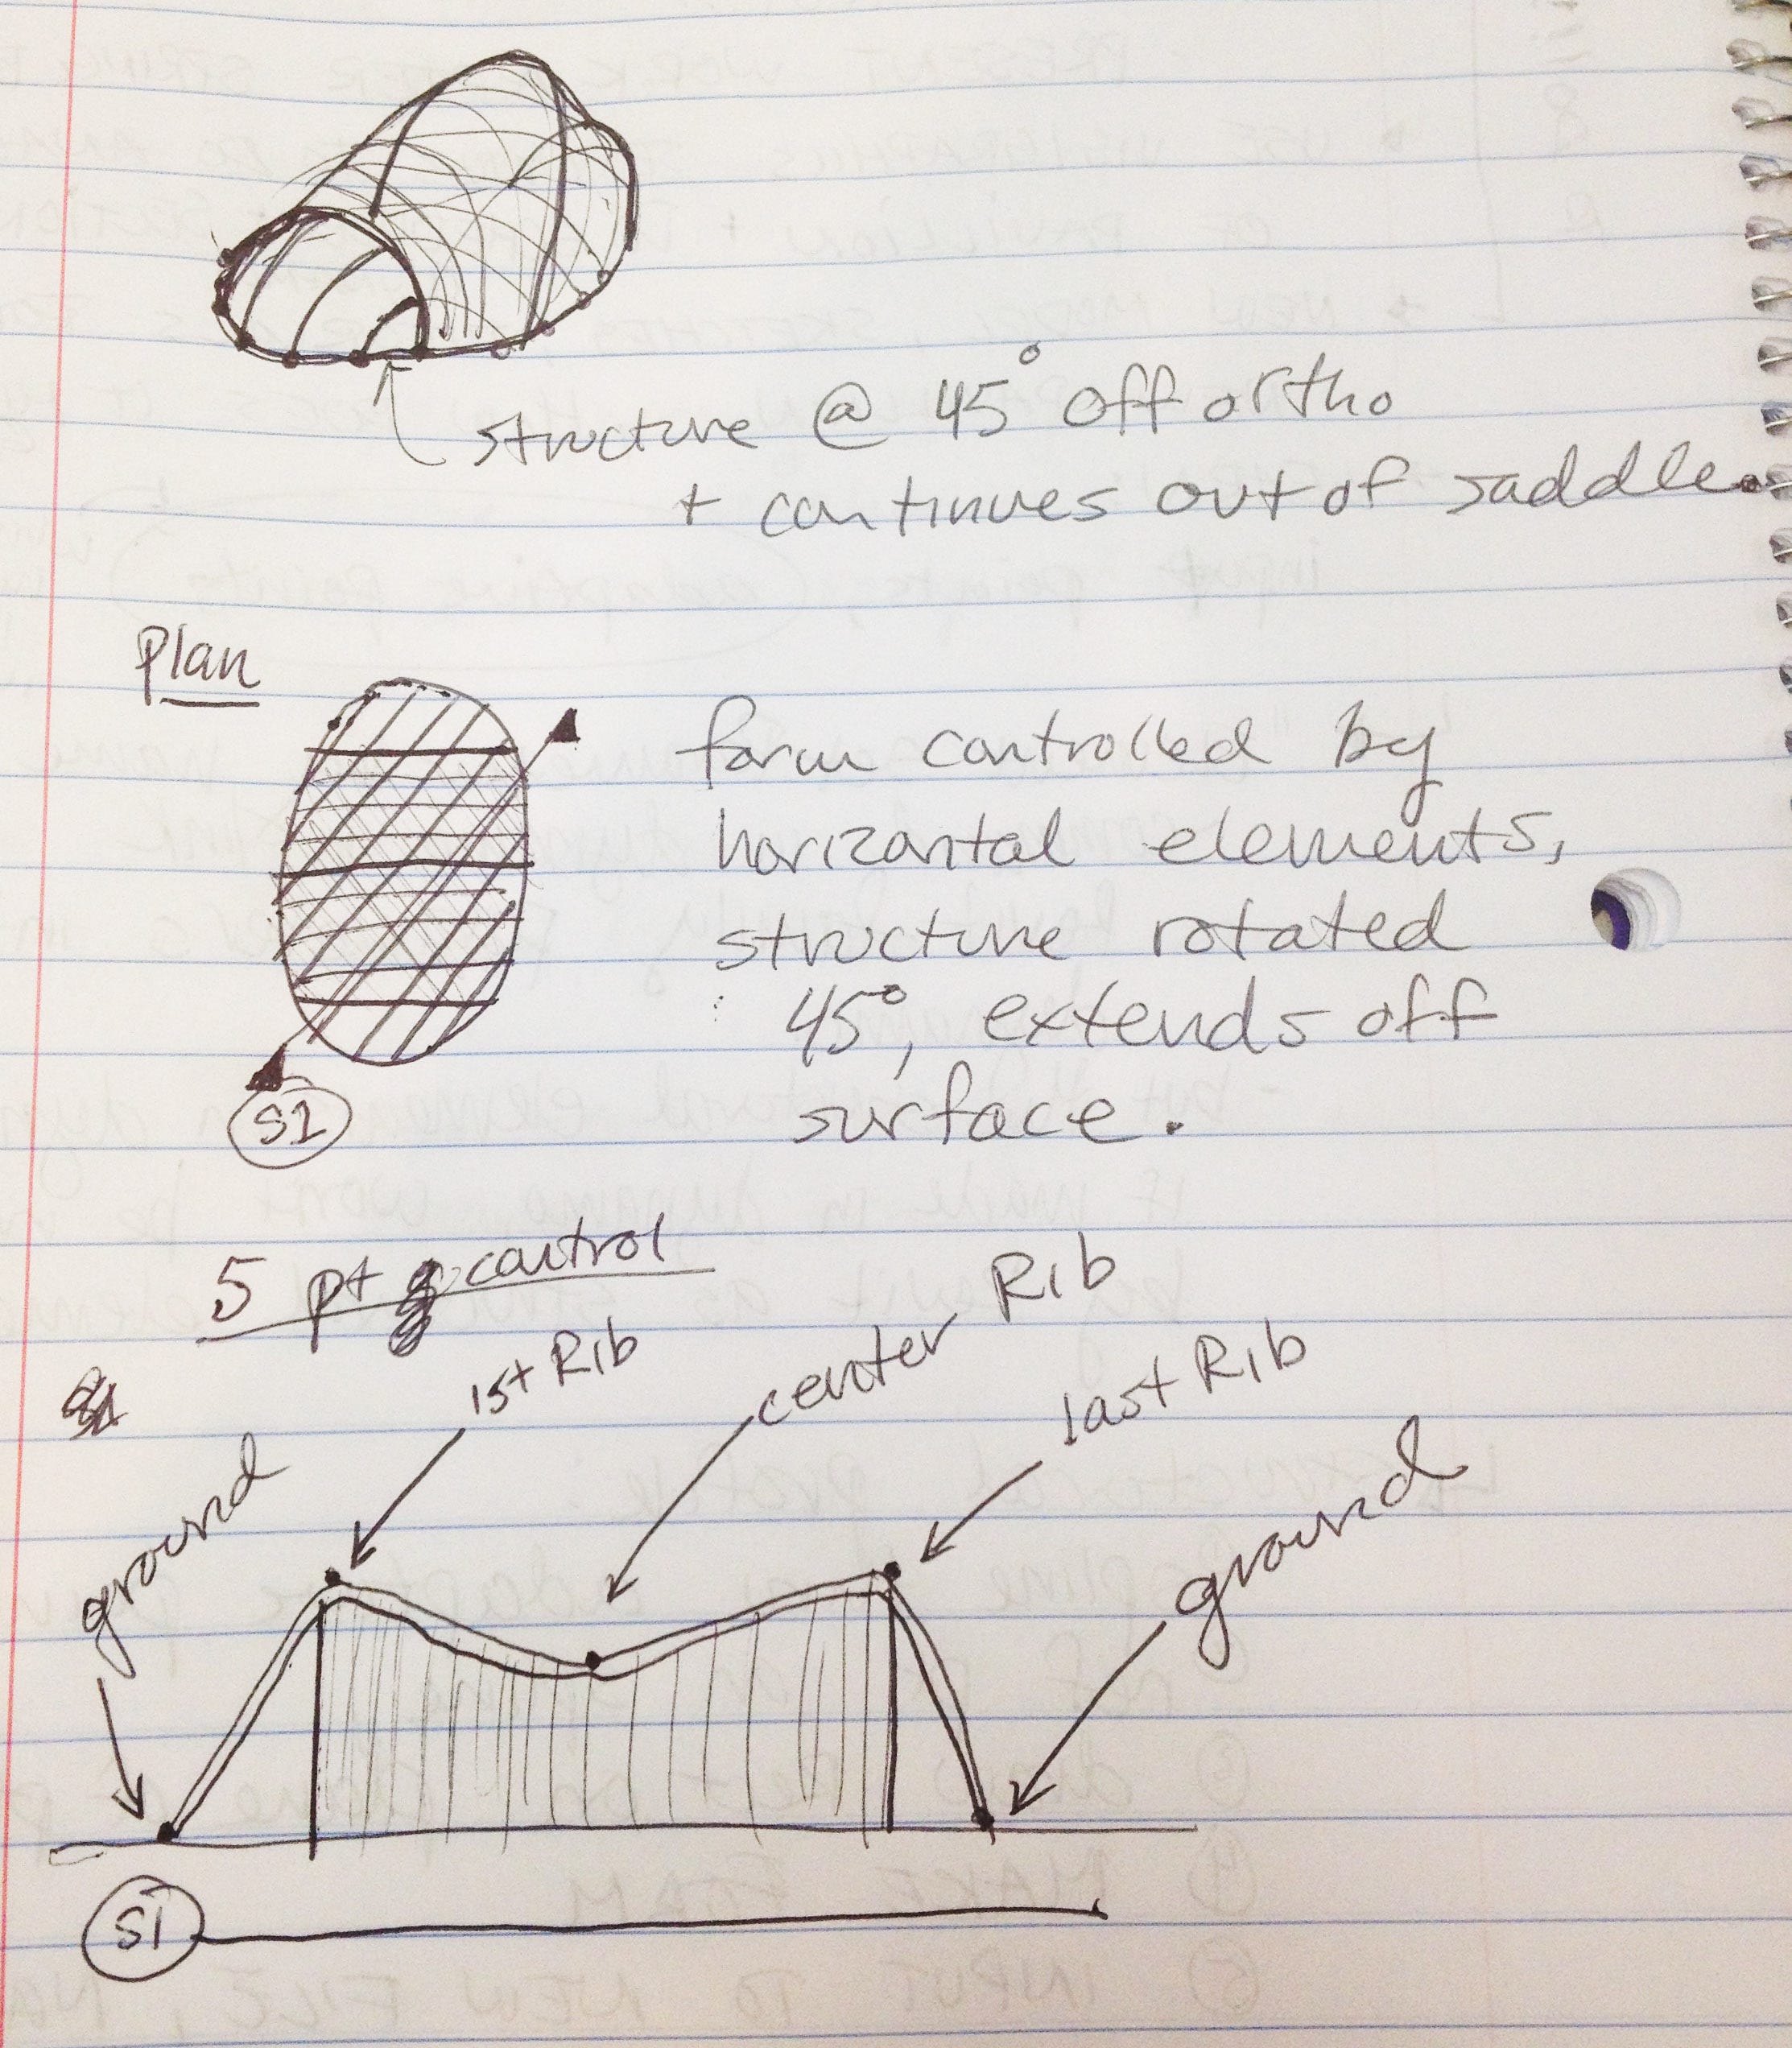 structure @ 45° off ortho
+ continues out of saddle.
Plan
form controlled by
horizontal elements,
structure rotated
45°, extends off
surface.
S1
5 pt control
1st Rib
center Rib
last Rib
ground
ground
S1